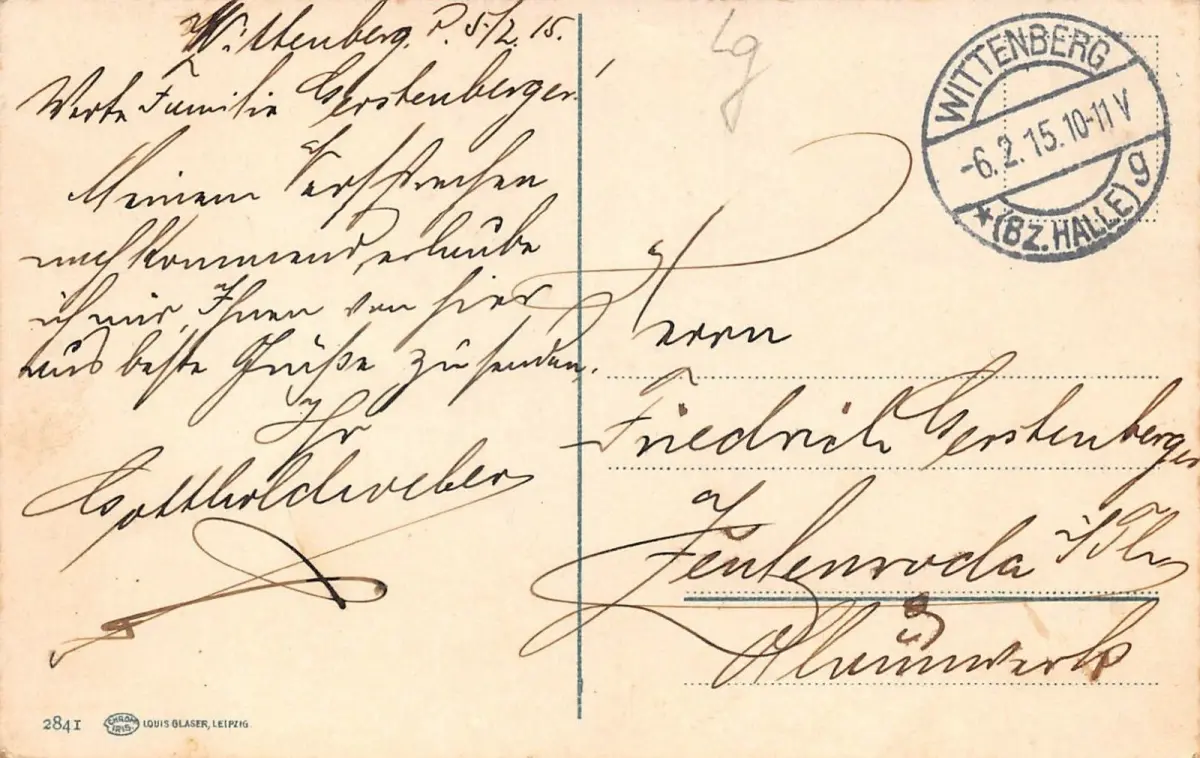 Wittenberg. d. 5/2. 15.
Werte Familie Gerstenberger.
Meinem Versprechen
nachkommend, erlaube
ich mir, Ihnen von hier
aus beste Grüße zu senden.
Ihr
Gotthold Weber
Lg
WITTENBERG
-6.2.15.10-11V
* (BZ.HALLE) g
Herrn
Friedrich Gerstenberger
Zeulenroda i/Th
Alaunwerk
2841 CHROM IRIS LOUIS GLASER, LEIPZIG.